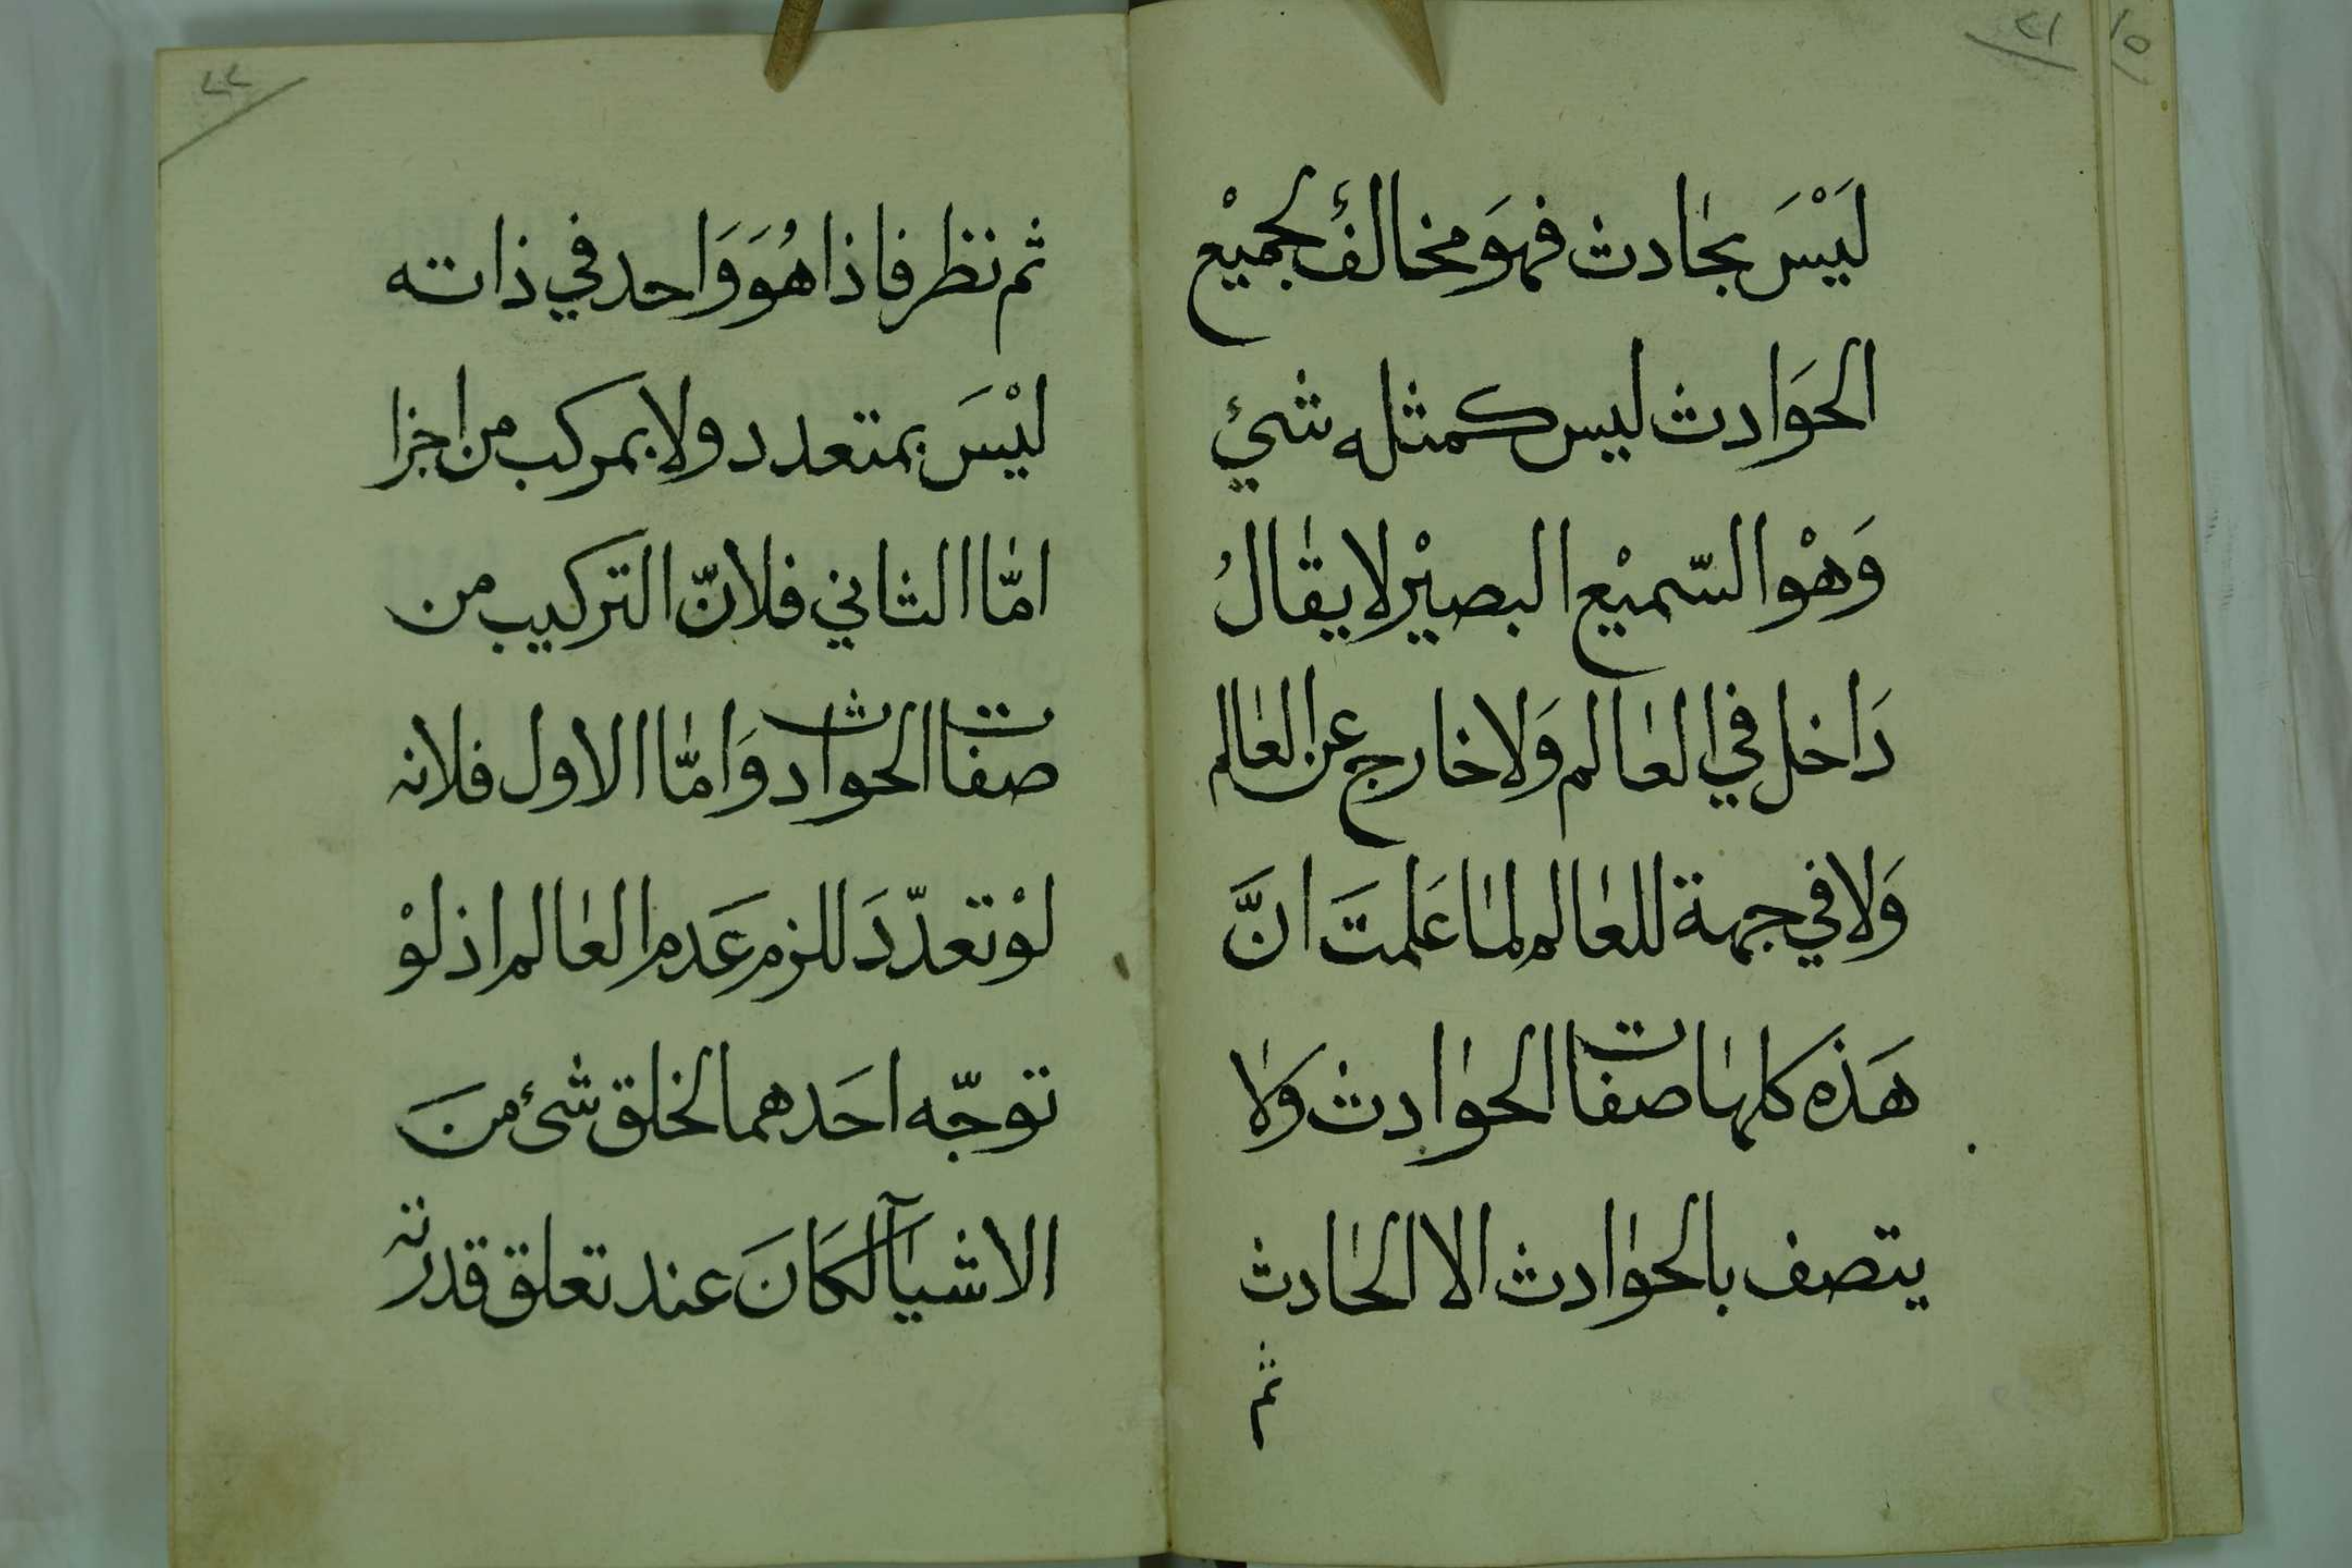 ٢١
١٥
لَيْسَ بحٰادث فهوَ مخالفٌ لجميْع
الحوَادث ليس كمثله شيئ
وَهْوا السّميْع البصيْر لا يقٰالُ
دَاخل في العٰالم وَلا خارج عن العٰالم
وَلا في جهة للعٰالم لمٰا عَلمتَ انَّ
هَذه كلهٰا صفات الحوٰادث وَلاٰ
يتصف بالحوٰادث الا الحٰادث
ثم
٢٢
ثم نظر فاذا هُوَ وَاحد في ذاته
ليْسَ بمتعدد ولا بمركب من اجزا
امّٰا الثاني فلانّ التركيب من
صفات الحوادث وَامّٰا الاول فلانه
لوْ تعدّدَ للزم عَدم العٰالم اذ لوْ
توجّه احَدهما لخلق شئ من
الاشيآ لكَانَ عند تعلق قدرته